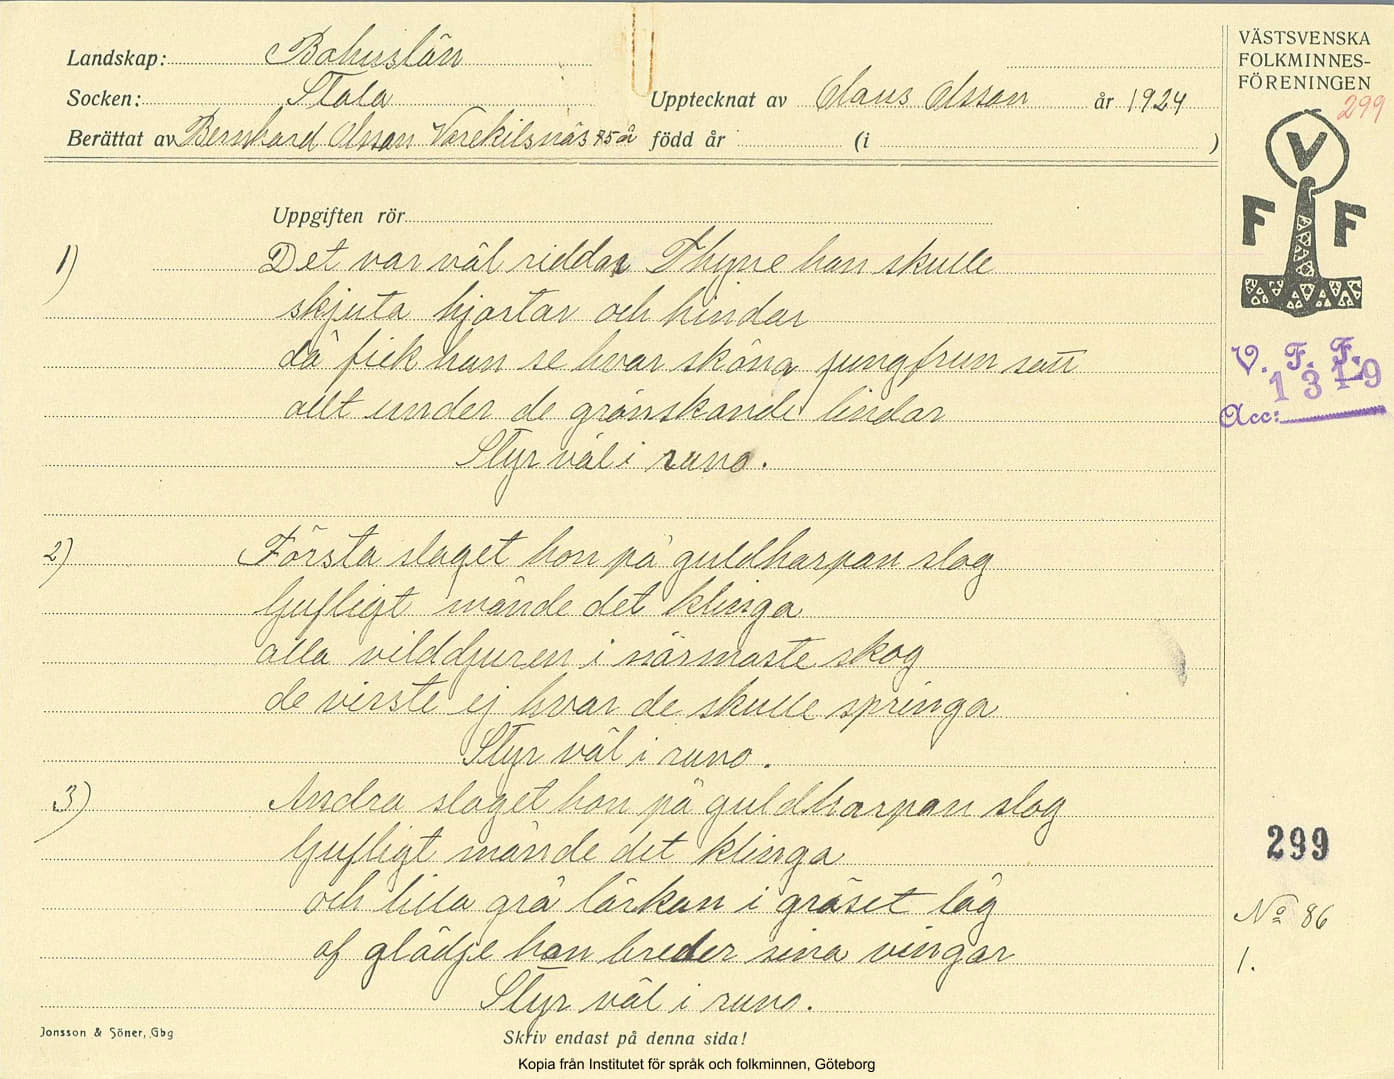 Landskap: Bohuslän
Socken: Stala
Upptecknat av Claus Olsson år 1924
Berättat av Bernhard Olsson Varekilsnäs 75 år född år (i )
VÄSTSVENSKA
FOLKMINNES-
FÖRENINGEN
299
V
F F
V. F. F.
1319
Acc:
Uppgiften rör
1) Det var väl riddar Thyne han skulle
skjuta hjortar och hindar
då fick han se hvar sköna jungfrun satt
allt under de grönskande lindar
Styr väl i runo.
2) Första slaget hon på guldharpan slog
ljufligt månde det klinga
alla vilddjuren i närmaste skog
de viste ej hvar de skulle springa
Styr väl i runo.
3) Andra slaget hon på guldharpan slog
ljufligt månde det klinga
och lilla grå lärkan i gräset låg
af glädje han breder sina vingar
Styr väl i runo.
299
No 86
1.
Jonsson & Söner, Gbg
Skriv endast på denna sida!
Kopia från Institutet för språk och folkminnen, Göteborg